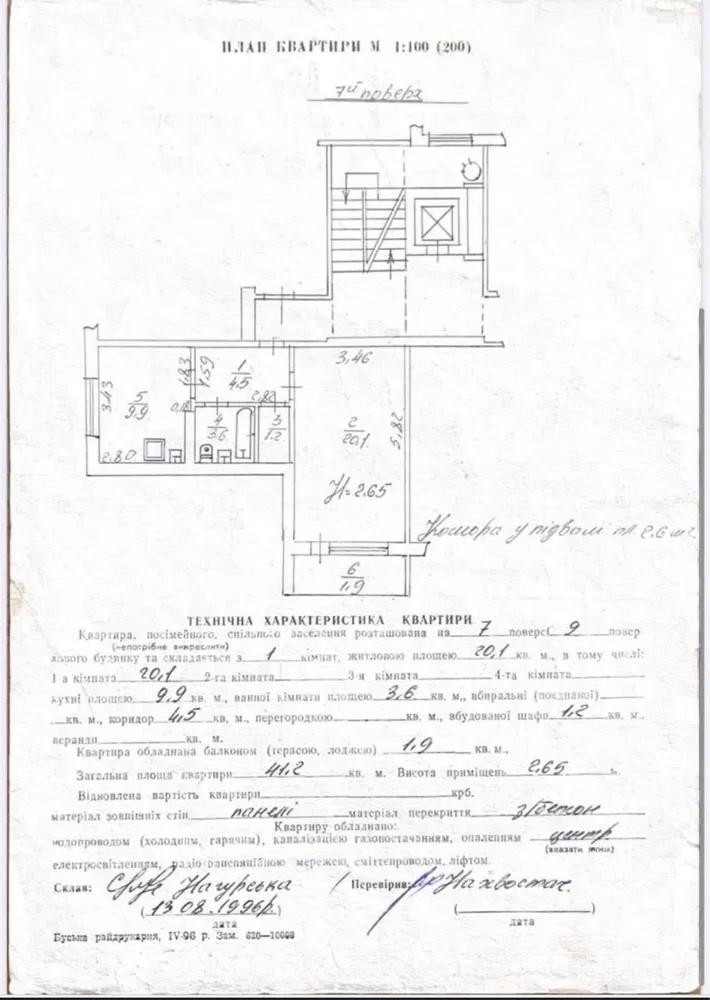 ПЛАН КВАРТИРИ М 1:100 (200)
7ий поверх
3,46
1
4.5
1,83
1,59
2,82
3,43
5
9.9
0,12
4
3.6
3
1.2
2
20,1
5,82
2.80
Н=2.65
Комора у підвалі пл. 2.6 м²
6
1.9
ТЕХНІЧНА ХАРАКТЕРИСТИКА КВАРТИРИ
Квартира, посімейного, спільного заселення розташована на 7 поверсі 9 повер-
(непотрібне викреслити)
хового будинку та складається з 1 кімнат, житловою площею 20,1 кв. м., в тому числі:
1-а кімната 20,1 2-га кімната 3-я кімната 4-та кімната
кухні площею 9,9 кв. м., ванної кімнати площею 3,6 кв. м, вбиральні (поєднаної)
кв. м., коридор 4,5 кв, м., перегородкою кв. м., вбудованої шафи 1,2 кв. м.
веранди кв. м.
Квартира обладнана балконом (терасою, лоджею) 1,9 кв. м.,
Загальна площа квартири 41,2 кв. м. Висота приміщень 2.65 м.
Відновлена вартість квартири крб.
матеріал зовнішніх стін панелі матеріал перекриття з/бетон
Квартиру обладнано:
водопроводом (холодним, гарячим), каналізацією газопостачанням, опаленням центр
(вказати яким)
електросвітленням, радіотрансляційною мережею, сміттєпроводом, ліфтом.
Склав: Нагурська Перевірив: Нахвостач.
(13.08.1996р.) ( )
дата дата
Буська райдрукарня, IV-96 р. Зам. 620—10000